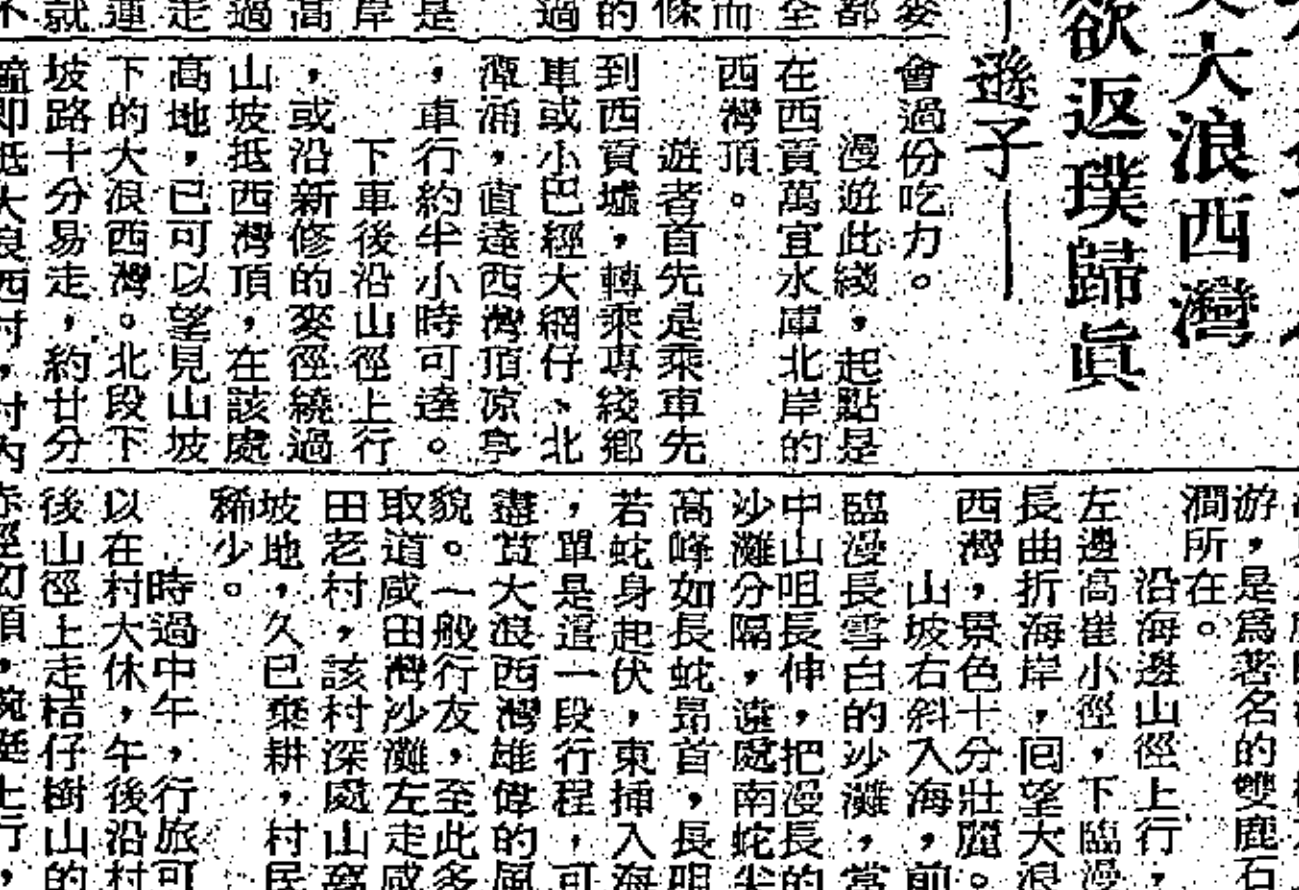 大浪西灣
欲返璞歸眞
遜子
會過份吃力。
漫遊此綫，起點是
在西貢萬宜水庫北岸的
西灣頂。
遊者首先是乘車先
到西貢墟，轉乘專綫鄉
車或小巴經大網仔、北
潭涌，直達西灣頂凉亭
，車行約半小時可達。
下車後沿山徑上行
，或沿新修的麥徑繞過
山坡抵西灣頂，在該處
高地，已可以望見山坡
下的大浪西灣。北段下
坡路十分易走，約廿分
鐘即抵大浪西村，村內
游，是爲著名的雙鹿石
澗所在。
沿海邊山徑上行，
左邊高崖小徑，下臨漫
長曲折海岸，回望大浪
西灣，景色十分壯麗。
山坡右斜入海，前
臨漫長雪白的沙灘，當
中山咀長伸，把漫長的
沙灘分隔，遠處南蛇尖
高峰如長蛇昻首，長咀
若蛇身起伏，東揷入海
，單是這一段行程，可
盡賞大浪西灣雄偉的風
貌。一般行友，至此多
取道咸田灣沙灘左走咸
田老村，該村深處山窩
坡地，久已棄耕，村民
稀少。
時過中午，行旅可
以在村大休，午後沿村
後山徑上走桔仔樹山的
赤徑坳頂，蜿蜒上行，